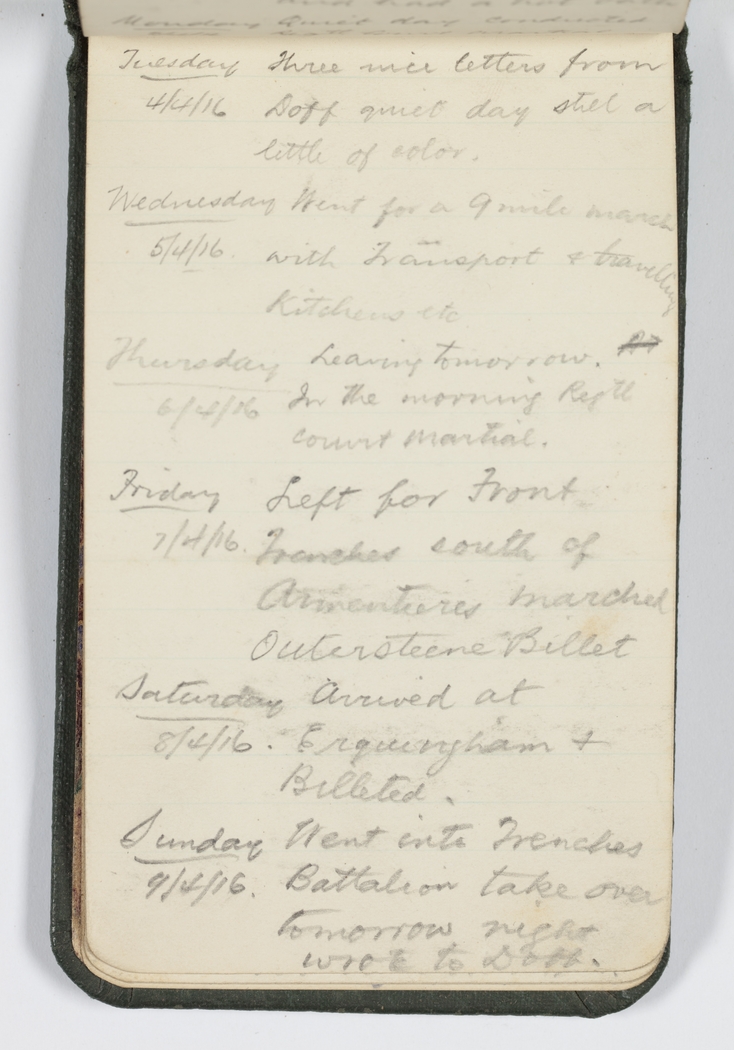 and had a hot bath
Monday Quiet day conducted
Tuesday Three nice letters from
4/4/16 Doff quiet day still a
little of color.
Wednesday Went for a 9 mile march
5/4/16. with Transport & travelling
Kitchens etc
Thursday Leaving tomorrow.
6/4/16 In the morning Regtl
court martial.
Friday Left for Front
7/4/16. Trenches south of
Armentieres marched
Outersteene Billet
Saturday Arrived at
8/4/16. Erquingham +
Billeted.
Sunday Went into Trenches
9/4/16. Battalion take over
tomorrow night
wrote to Doff.